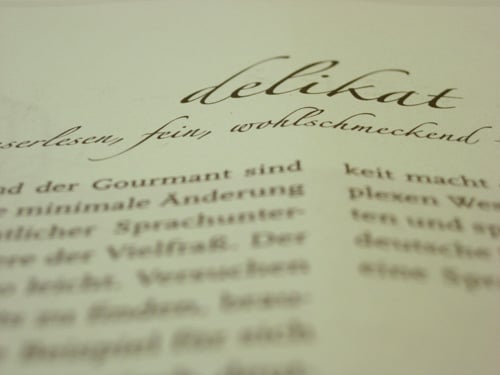 delikat
serlesen, fein, wohlschmeckend -
nd der Gourmant sind
e minimale Änderung
tlicher Sprachunter-
ere der Vielfraß. Der
so leicht. Versuchen
zu finden, bezo-
Beispiel für sich
keit macht
plexen We
ten und sp
deutsche
eine Spr